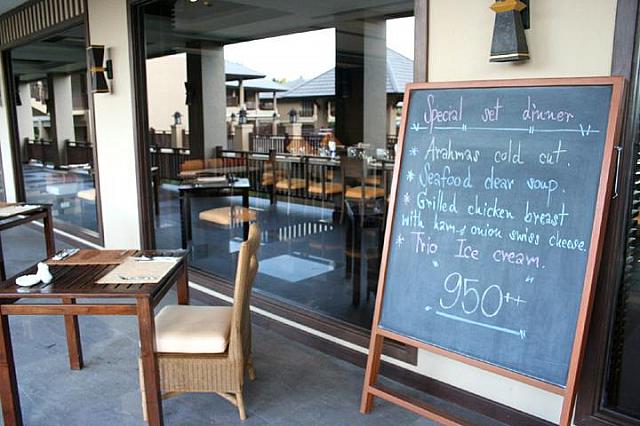 Special set dinner
* Arahmas cold cut.
* Seafood clear soup.
* Grilled chicken breast
with ham & onion swiss cheese.
* Trio Ice cream.
950++